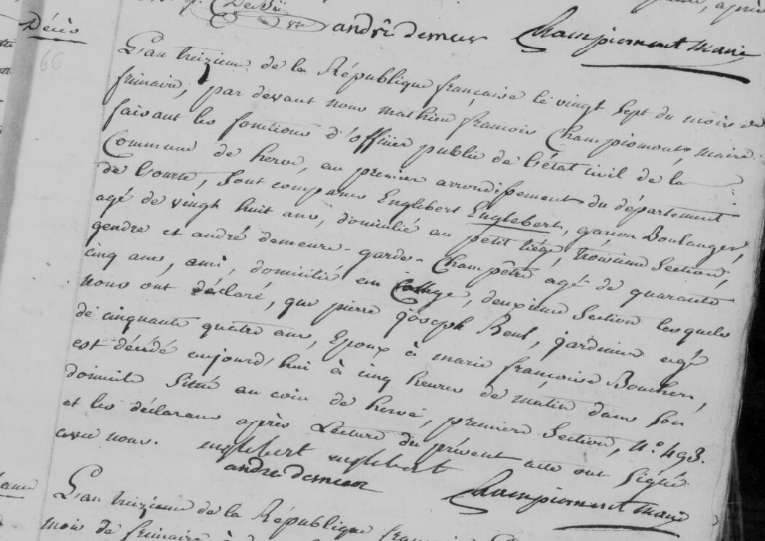 andré demeur Championnont Maire
Décès
66
L'an treizieme de la République française le vingt sept du mois de
frimaire, par devant nous mathieu françois Championont, maire
faisant les fonctions d'officier public de l'état civil de la
Commune de herve, au premier arrondissement du département
de l'ourte, sont comparus Englebert Englebert, garçon Boulanger,
agé de vingt huit ans, domicilié au petit liége, troisieme Section,
gendre et andré demeure garde-Champêtre agé de quarante
cinq ans, ami, domicilié en deuxieme Section lesquels
nous ont déclaré, que pierre joseph Reul, jardinier agé
de cinquante quatre ans, Epoux à marie françoise Bouchen,
est décédé aujourd'hui à cinq heures de matin dans son
domicile Situé au coin de hervé, premiere Section, N.° 493.
et les déclarans après Lecture du présent acte ont Signé
avec nous. englebert englebert
andré demeur Championnont Maire
L'an treizieme de la République
mois de frimaire